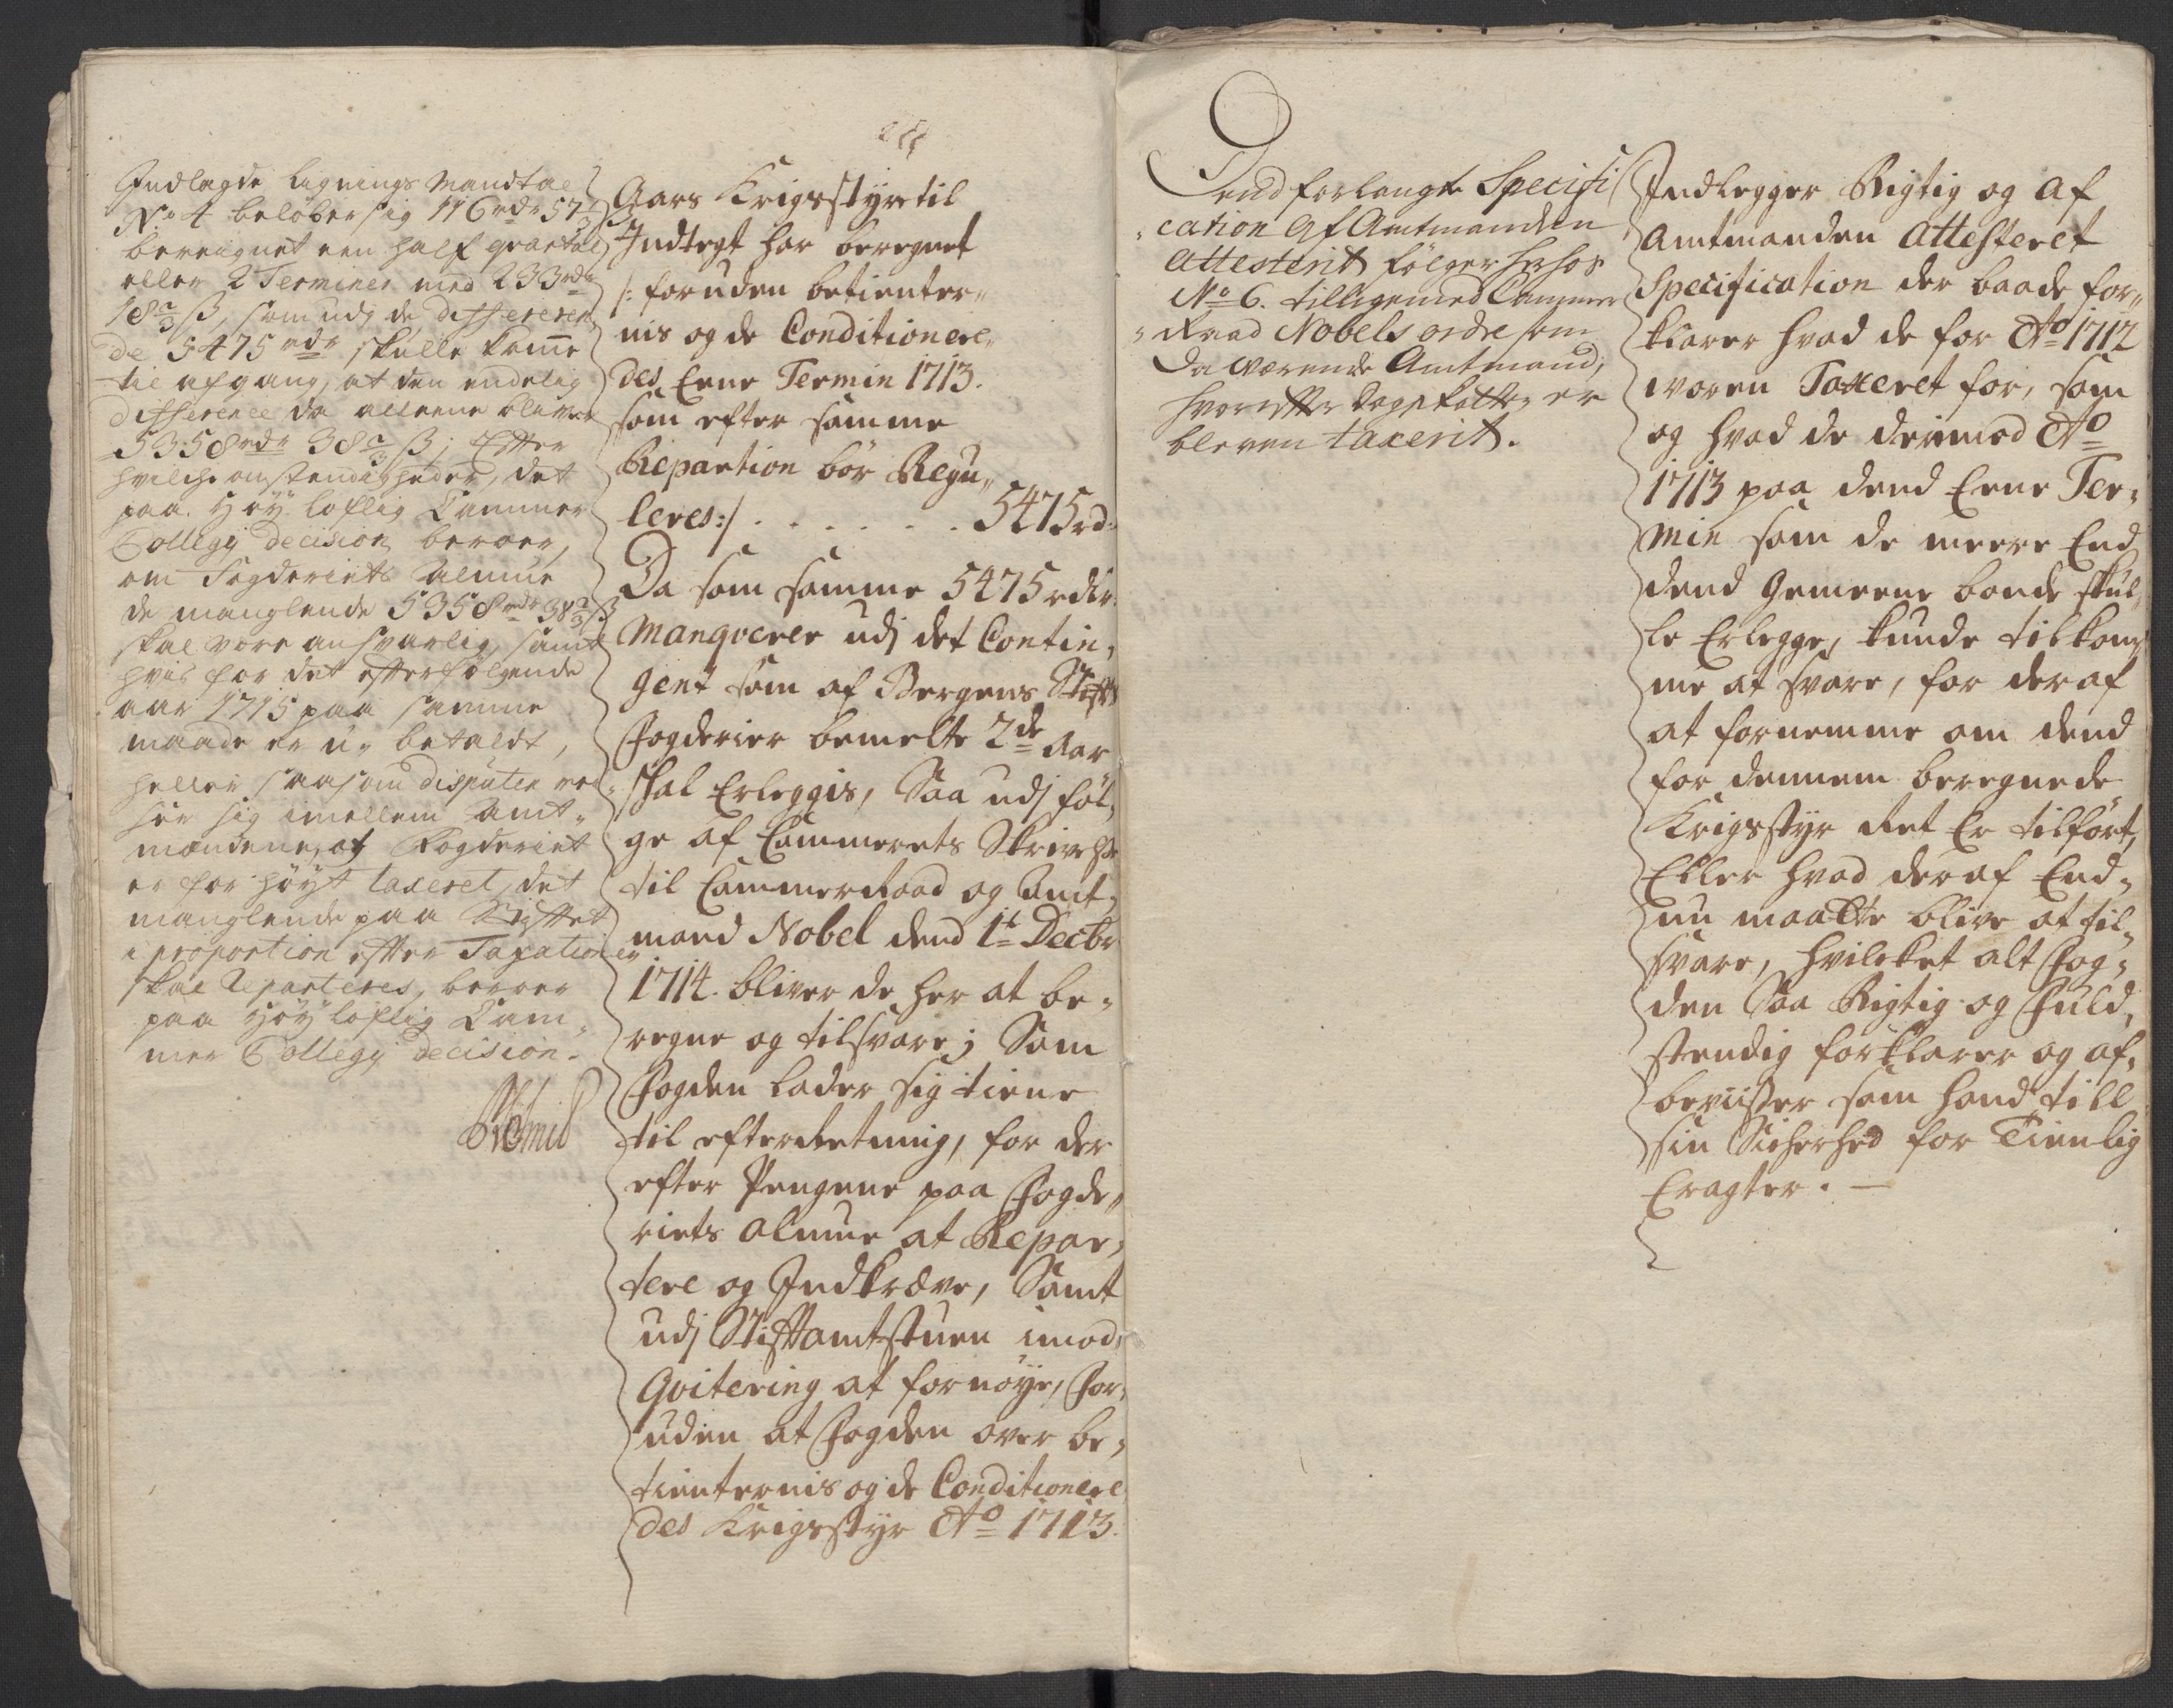 Indlagde Lignings Mandtal
No 4 beløber sig 116 rdr 57 1/3 ß
bereignet een half qvartal
eller 2 Terminer med 233 rdr
18 2/3 ß, som udj de differeren
de 5475 rdr skulle komme
til afgang, at den endelig
difference da alleene bliver
5358 rdr 38 2/3 ß; Efter
hvilche omstendigheder, det
paa Høy loflig Cammer
Collegij decision beroer,
om Fogderiets Almue
de manglende 5358 rdr 38 2/3 ß
skal være ansvarlig, samt
hvis for det efterfølgende
aar 1715 paa samme
maade er u-betaldt,
heller saasom disputen
sig imellem Amt-
mændene, at Fogderiet
er for høyt taxeret, det
manglende paa Stigtet
i proportion efter Taxationen
skal Reparteres, beroer
paa Høy loflig Cam-
mer Collegij decision.

Aars Krigsstyr til
Indtegt har beregnet
/: foruden betienter-
nis og de Conditionere-
des Eene Termin 1713.
som efter samme
Repartion bør Regu-
leres :/ . . . . . . . 5475 rd:
Da som samme 5475 rdlr
Manqverer udj det Contin-
gent som af Bergens Stigts
Fogderier bemelte 2de Aar
skal Erleggis, Saa udj føl-
ge af Cammerets Skrivelse
til Cammerraad og Amt-
mand Nobel dend 1t Decbr
1714. bliver de her at be-
regne og tilsvare; Som
Fogden lader sig tiene
til efterretning, for der
efter Pengene paa Fogde-
riets Almue at Repar-
tere og Indkræve, Samt
udj Stiftamtstuen imod
Qvitering at fornøye, For-
uden at Fogden over be-
tienternis og de Conditionere
des Krigsstyr Ao 1713.

Dend forlangte Specifi
cation Af Amtmanden
Attesterit følger herhos
No 6. tilligemed Cammer
Raad Nobels ordre som
Da værende Amtmand,
hvorefter Dagskatten er
bleven taxerit.

Indlegger Rigtig og af
Amtmanden Attesteret
Specification der baade for-
klarer hvad de for Ao 1712
woren Taxeret for, som
og hvad de derimod Ao
1713 paa dend Eene Ter-
min som de meere End
dend Gemeene bonde skul-
le Erlegge, kunde tilkom-
me at svare, for deraf
at fornemme om dend
for dennem beregnede
Krigsstyr ret Er tilført,
Eller hvad deraf End-
nu maatte blive at til-
svare, hvilcket alt Fog-
den Saa Rigtig og Fuld-
stendig forklarer og af-
beviisser som hand till
sin Sickerhed for Tienlig
Eragter. —